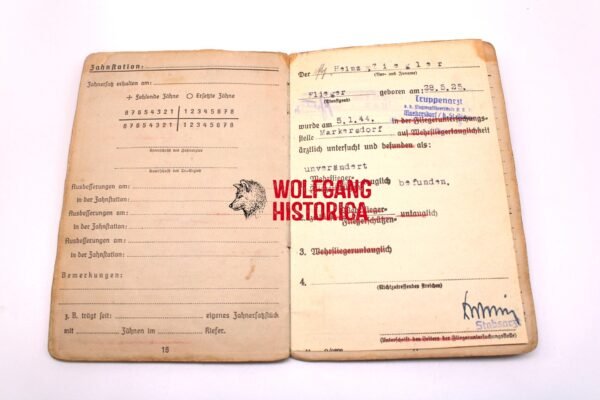 Zahnstation:
Zahnersatz erhalten am:
+ Fehlende Zähne ○ Ersetzte Zähne
8 7 6 5 4 3 2 1 | 1 2 3 4 5 6 7 8
8 7 6 5 4 3 2 1 | 1 2 3 4 5 6 7 8
Ausbesserungen am:
in der Zahnstation:
Ausbesserungen am:
in der Zahnstation:
Ausbesserungen am:
in der Zahnstation:
Bemerkungen:
z. B. trägt seit: eigenes Zahnersatzstück
mit Zähnen im Kiefer.
16
Der Heinz Ziegler
(Vor- und Zuname)
Flieger geboren am: 28.5.25.
(Dienstgrad)
Truppenarzt
wurde am 5.1.44. in der Fliegeruntersuchungs-
stelle Markersdorf auf Wehrfliegertauglichkeit
ärztlich untersucht und befunden als:
unverändert
Wehrflieger-
tauglich befunden.
WOLFGANG
HISTORICA
untauglich
Fliegerschützen-
3. Wehrfliegeruntauglich
4.
(Nichtzutreffendes streichen)
Stabsarzt
(Unterschrift des Leiters der Fliegeruntersuchungsstelle)